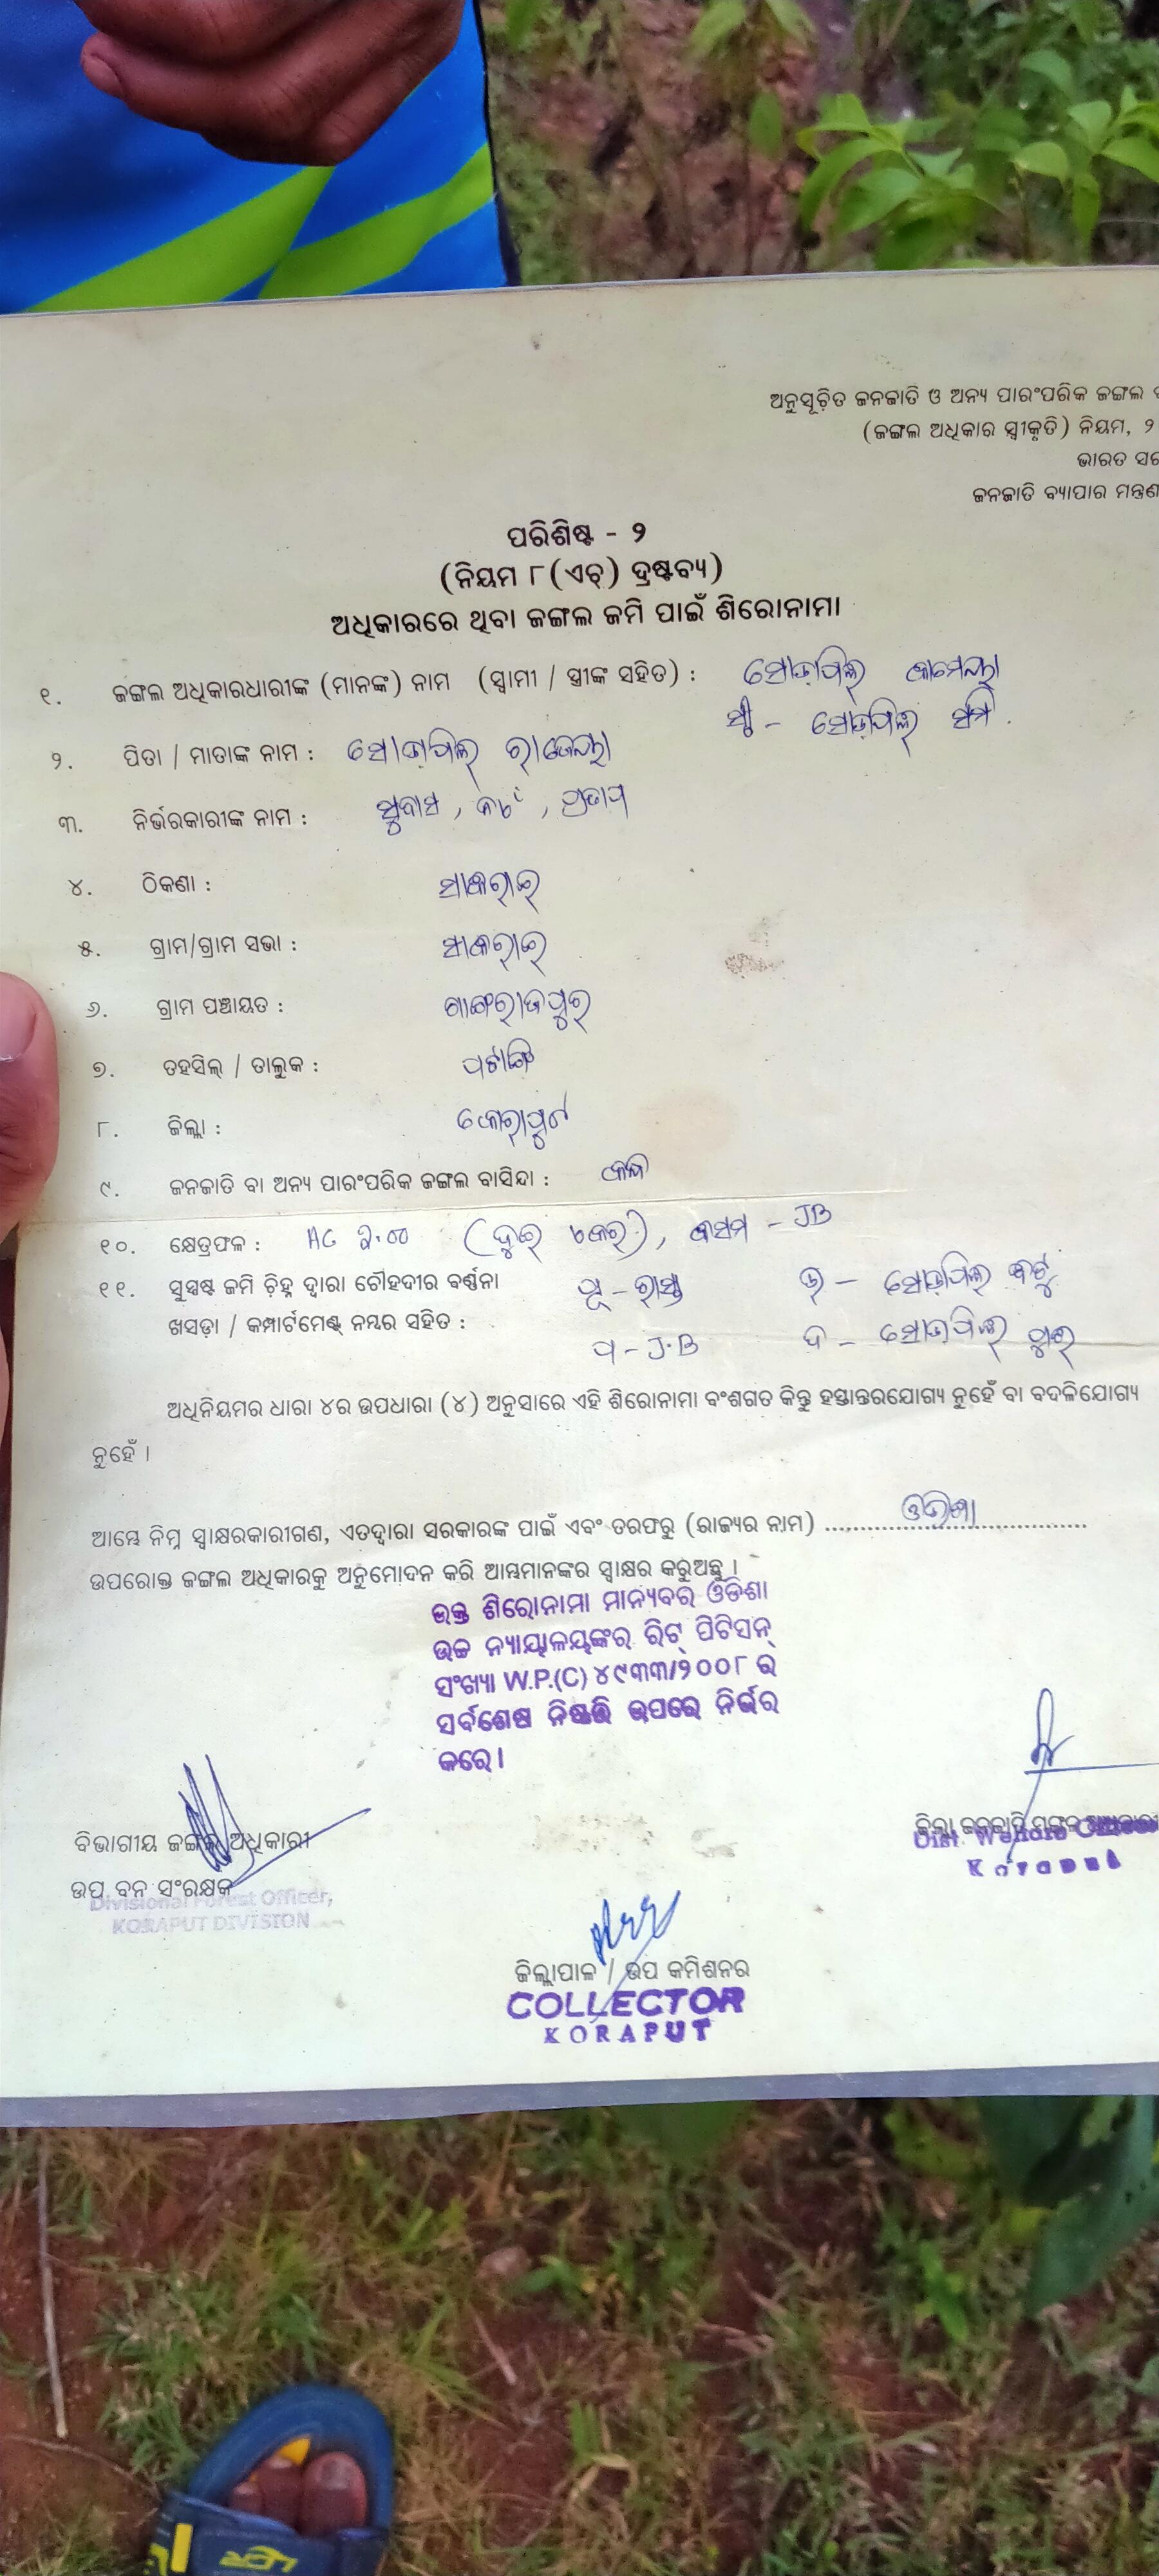 ଅନୁସୂଚିତ ଜନଜାତି ଓ ଅନ୍ୟ ପାରଂପରିକ ଜଙ୍ଗଲ
(ଜଙ୍ଗଲ ଅଧିକାର ସ୍ୱୀକୃତି) ନିୟମ, ୨
ଭାରତ ସର
ଜନଜାତି ବ୍ୟାପାର ମନ୍ତ୍ରଣ
ପରିଶିଷ୍ଟ - ୨
(ନିୟମ ୮(ଏଚ୍) ଦ୍ରଷ୍ଟବ୍ୟ)
ଅଧିକାରରେ ଥିବା ଜଙ୍ଗଲ ଜମି ପାଇଁ ଶିରୋନାମା
୧. ଜଙ୍ଗଲ ଅଧିକାରଧାରୀଙ୍କ (ମାନଙ୍କ) ନାମ (ସ୍ୱାମୀ / ସ୍ତ୍ରୀଙ୍କ ସହିତ) :
୨. ପିତା / ମାତାଙ୍କ ନାମ :
୩. ନିର୍ଭରକାରୀଙ୍କ ନାମ : ସୁବାସ,
୪. ଠିକଣା : ସାକରାଇ
୫. ଗ୍ରାମ/ଗ୍ରାମ ସଭା : ସାକରାଇ
୬. ଗ୍ରାମ ପଞ୍ଚାୟତ : ଗାଙ୍ଗରାଜପୁର
୭. ତହସିଲ୍ / ତାଲୁକ : ପଟାଙ୍ଗି
୮. ଜିଲ୍ଲା : କୋରାପୁଟ
୯. ଜନଜାତି ବା ଅନ୍ୟ ପାରଂପରିକ ଜଙ୍ଗଲ ବାସିନ୍ଦା :
୧୦. କ୍ଷେତ୍ରଫଳ : AC ୨.୦୦ (ଦୁଇ ଏକର), କିସମ - JB
୧୧. ସୁସ୍ପଷ୍ଟ ଜମି ଚିହ୍ନ ଦ୍ୱାରା ଚୌହଦୀର ବର୍ଣ୍ଣନା ପୂ - ରାସ୍ତା ଉ -
ଖସଡ଼ା / କମ୍ପାର୍ଟମେଣ୍ଟ୍ ନମ୍ବର ସହିତ : ପ - J.B ଦ -
ଅଧିନିୟମର ଧାରା ୪ର ଉପଧାରା (୪) ଅନୁସାରେ ଏହି ଶିରୋନାମା ବଂଶଗତ କିନ୍ତୁ ହସ୍ତାନ୍ତରଯୋଗ୍ୟ ନୁହେଁ ବା ବଦଳିଯୋଗ୍ୟ
ନୁହେଁ ।
ଆମ୍ଭେ ନିମ୍ନ ସ୍ୱାକ୍ଷରକାରୀଗଣ, ଏତଦ୍ୱାରା ସରକାରଙ୍କ ପାଇଁ ଏବଂ ତରଫରୁ (ରାଜ୍ୟର ନାମ) ........ ଓଡ଼ିଶା ........
ଉପରୋକ୍ତ ଜଙ୍ଗଲ ଅଧିକାରକୁ ଅନୁମୋଦନ କରି ଆମ୍ଭମାନଙ୍କର ସ୍ୱାକ୍ଷର କରୁଅଛୁ ।
ଉକ୍ତ ଶିରୋନାମା ମାନ୍ୟବର ଓଡିଶା
ଉଚ୍ଚ ନ୍ୟାୟାଳୟଙ୍କର ରିଟ୍ ପିଟିସନ୍
ସଂଖ୍ୟା W.P.(C) ୪୯୩୩/୨୦୦୮ ର
ସର୍ବଶେଷ ନିଷ୍ପତ୍ତି ଉପରେ ନିର୍ଭର
କରେ ।
ବିଭାଗୀୟ ଜଙ୍ଗଲ ଅଧିକାରୀ
ଉପ ବନ ସଂରକ୍ଷକ
Divisional Forest Officer,
KORAPUT DIVISION
ଜିଲ୍ଲା ଜନଜାତି ମଙ୍ଗଳ ଅଧିକାରୀ
Dist. Welfare Officer
Koraput
ଜିଲ୍ଲାପାଳ / ଉପ କମିଶନର
COLLECTOR
KORAPUT